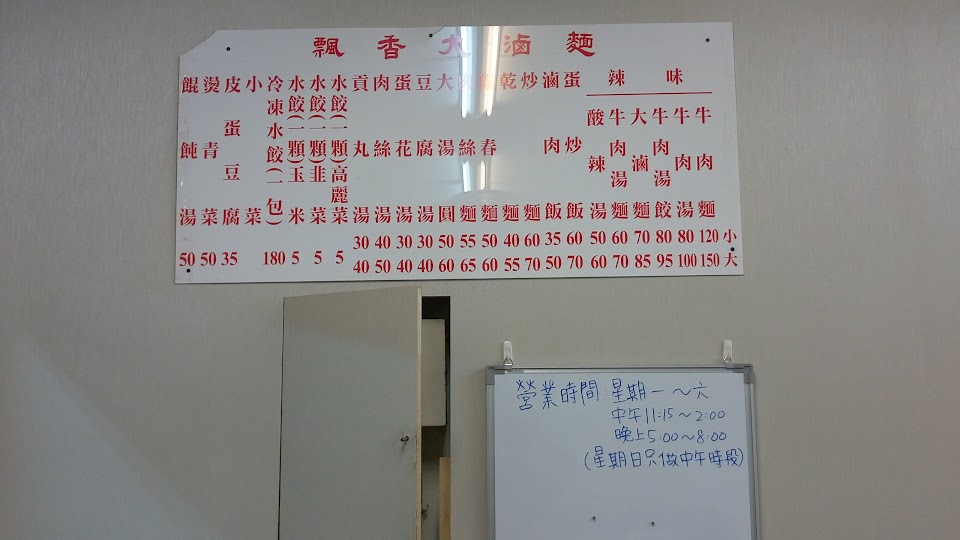 飄香大滷麵
辣味
小
大
牛肉麵 120 150
牛肉湯 80 100
牛肉湯餃 80 95
大滷麵 70 85
牛肉湯麵 60 70
酸辣湯 50 60
蛋炒飯 60 70
滷肉飯 35 50
炒麵 60 70
乾麵 40 55
春麵 50 60
絲麵 55 65
大湯圓 50 60
豆腐湯 30 40
蛋花湯 30 40
肉絲湯 40 50
貢丸湯 30 40
水餃(一顆)高麗菜 5
水餃(一顆)韭菜 5
水餃(一顆)玉米 5
冷凍水餃(一包) 180
小菜
皮蛋豆腐 35
燙青菜 50
餛飩湯 50
營業時間:星期一~六
中午11:15~2:00
晚上5:00~8:00
(星期日只做中午時段)